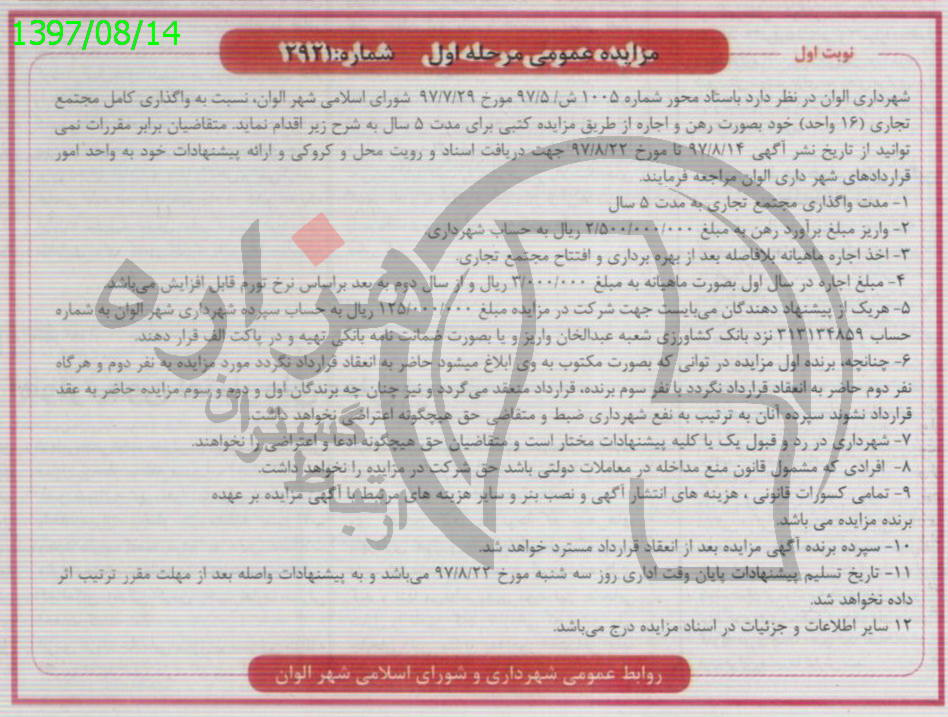 1397/08/14
نوبت اول
مزایده عمومی مرحله اول شماره: ۲۹۲۱
شهرداری الوان در نظر دارد باستاد محور شماره ۱۰۰۵ ش/ ۹۷/۵ مورخ ۹۷/۷/۲۹ شورای اسلامی شهر الوان، نسبت به واگذاری کامل مجتمع
تجاری (۱۶ واحد) خود بصورت رهن و اجاره از طریق مزایده کتبی برای مدت ۵ سال به شرح زیر اقدام نماید. متقاضیان برابر مقررات نمی
توانید از تاریخ نشر آگهی ۹۷/۸/۱۴ تا مورخ ۹۷/۸/۲۲ جهت دریافت اسناد و رویت محل و کروکی و ارائه پیشنهادات خود به واحد امور
قراردادهای شهر داری الوان مراجعه فرمایند.
۱- مدت واگذاری مجتمع تجاری به مدت ۵ سال
۲- واریز مبلغ برآورد رهن به مبلغ ۲/۵۰۰/۰۰۰/۰۰۰ ریال به حساب شهرداری
۳- اخذ اجاره ماهیانه بلافاصله بعد از بهره برداری و افتتاح مجتمع تجاری.
۴- مبلغ اجاره در سال اول بصورت ماهیانه به مبلغ ۳/۰۰۰/۰۰۰ ریال و از سال دوم به بعد براساس نرخ تورم قابل افزایش می‌باشد.
۵- هریک از پیشنهاد دهندگان می‌بایست جهت شرکت در مزایده مبلغ ۱۲۵/۰۰۰/۰۰۰ ریال به حساب سپرده شهرداری شهر الوان به شماره
حساب ۳۱۳۱۳۴۸۵۹ نزد بانک کشاورزی شعبه عبدالخان واریز و یا بصورت ضمانت نامه بانکی تهیه و در پاکت الف قرار دهند.
۶- چنانچه، برنده اول مزایده در توانی که بصورت مکتوب به وی ابلاغ میشود حاضر به انعقاد قرارداد نگردد مورد مزایده به نفر دوم و هرگاه
نفر دوم حاضر به انعقاد قرارداد نگردد با نفر سوم برنده، قرارداد منعقد می‌گردد و نیز چنان چه برندگان اول و دوم و سوم مزایده حاضر به عقد
قرارداد نشوند سپرده آنان به ترتیب به نفع شهرداری ضبط و متقاضی حق هیچگونه اعتراضی نخواهد داشت.
۷- شهرداری در رد و قبول یک یا کلیه پیشنهادات مختار است و متقاضیان حق هیچگونه ادعا و اعتراضی را نخواهند.
۸- افرادی که مشمول قانون منع مداخله در معاملات دولتی باشد حق شرکت در مزایده را نخواهد داشت.
۹- تمامی کسورات قانونی ، هزینه های انتشار آگهی و نصب بنر و سایر هزینه های مرتبط با آگهی مزایده بر عهده
برنده مزایده می باشد.
۱۰- سپرده برنده آگهی مزایده بعد از انعقاد قرارداد مسترد خواهد شد.
۱۱- تاریخ تسلیم پیشنهادات پایان وقت اداری روز سه شنبه مورخ ۹۷/۸/۲۲ می‌باشد و به پیشنهادات واصله بعد از مهلت مقرر ترتیب اثر
داده نخواهد شد.
۱۲ سایر اطلاعات و جزئیات در اسناد مزایده درج می‌باشد.
روابط عمومی شهرداری و شورای اسلامی شهر الوان
هزاره